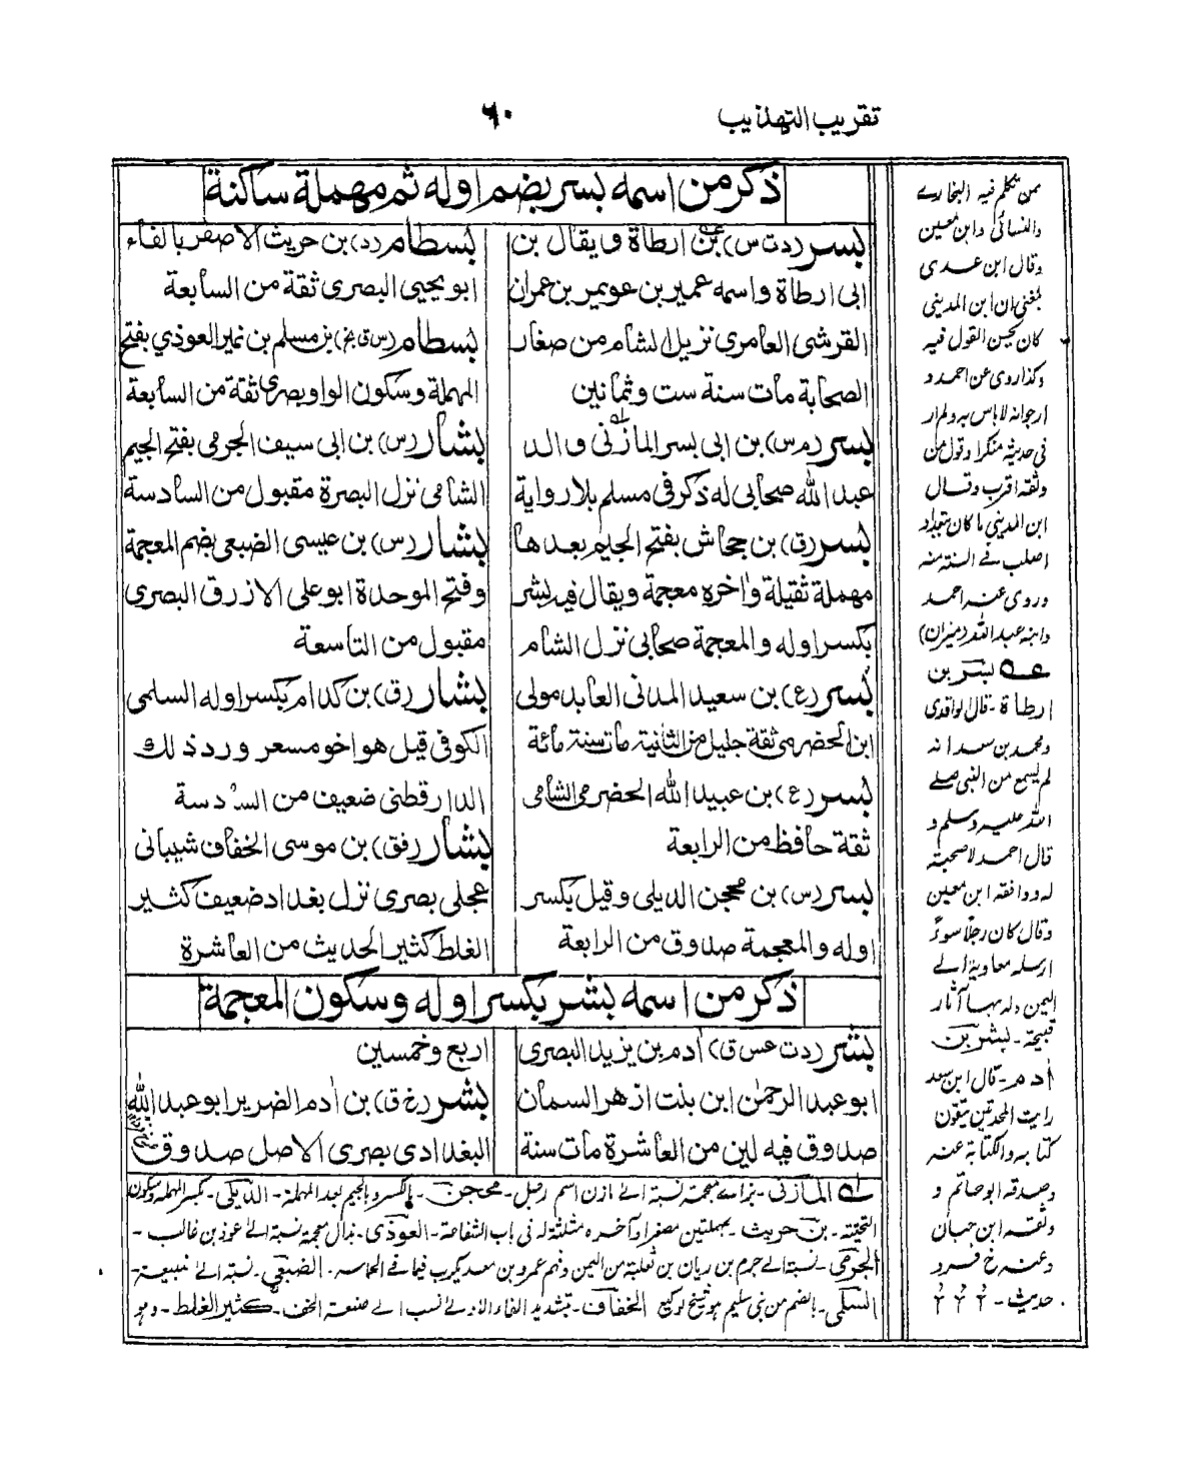 تقريب التهذيب
٦٠
ذكر من اسمه بسر بضم اوله ثم مهملة ساكنة
بسر (دت س) بن ارطاة ويقال بن
ابى ارطاة واسمه عمير بن عويمر بن عمران
القرشى العامرى نزيل الشام من صغار
الصحابة مات سنة ست وثمانين
بسر (م س) بن ابى بسر المازنى والد
عبد الله صحابى له ذكر فى مسلم بلا رواية
بسر (ق) بن جحاش بفتح الجيم بعدها
مهملة ثقيلة واخره معجمة ويقال فيه بشر
بكسر اوله والمعجمة صحابى نزل الشام
بسر (ع) بن سعيد المدنى العابد مولى
ابن الحضرمى ثقة جليل من الثانية مات سنة مائة
بسر (ع) بن عبيد الله الحضرمى الشامى
ثقة حافظ من الرابعة
بسر (س) بن محجن الديلى وقيل بكسر
اوله والمعجمة صدوق من الرابعة
بسطام (د) بن حريث الاصفر بالفاء
ابو يحيى البصرى ثقة من السابعة
بسطام (س ق بخ) بن مسلم بن نمير العوذي بفتح
المهملة وسكون الواو بصرى ثقة من السابعة
بشار (س) بن ابى سيف الجرمى بفتح الجيم
الشامى نزل البصرة مقبول من السادسة
بشار (س) بن عيسى الضبعى بضم المعجمة
وفتح الموحدة ابو على الازرق البصرى
مقبول من التاسعة
بشار (ق) بن كدام بكسر اوله السلمى
الكوفى قيل هو اخو مسعر ورد ذلك
الدارقطنى ضعيف من السادسة
بشار (فق) بن موسى الخفاف شيبانى
عجلى بصرى نزل بغداد ضعيف كثير
الغلط كثير الحديث من العاشرة
ذكر من اسمه بشر بكسر اوله وسكون المعجمة
بشر (دت عس ق) آدم بن يزيد البصرى
ابو عبد الرحمٰن ابن بنت ازهر السمان
صدوق فيه لين من العاشرة مات سنة
اربع وخمسين
بشر (خ ق) بن آدم الضرير ابو عبد الله
البغدادى بصرى الاصل صدوق
من تكلم فيه البخارے
والنسائى وابن معين
وقال ابن عدى
بلغنى ان ابن المدينى
كان يحسن القول فيه
وكذا روى عن احمد و
ارجو انه لا باس به ولم ار
فى حديثه منكرا وقول من
وثقه اقرب وقال
ابن المدينى ما كان ببغداد
اصلب فے السنة منه
وروى عنه احمد
وابنه عبد الله (ميزان)
عه بسر بن
ارطاة - قال الواقدى
ومحمد بن سعد انه
لم يسمع من النبى صلے
الله عليه وسلم و
قال احمد لا صحبة
له ووافقه ابن معين
وقال كان رجلا سوءً
ارسله معاوية الے
اليمن وله بها آثار
قبيحة - بشر بن
آدم - قال ابن سعد
رايت المحدثين يتقون
كتابه والكتابة عنه
وصدقه ابو حاتم و
وثقه ابن حبان
وعنه خ فرد
حديث -
لـه المازنى - بزاے معجمة نسبة الے مازن اسم رجل - محجن - بالكسر والجيم بعد المهملة - الديلى - بكسر المهملة وسكون
التحتية - بن حريث - بمهملتين مصغرا وآخره مثلثة له فى باب الشفاعة - العوذى - بذال معجمة نسبة الے عوذ بن غالب -
الجرمى - نسبة الے جرم بن ريان بن ثعلبة من اليمن ومنهم عمرو بن معديكرب فيما فے الحماسه - الضبعى - نسبة الے ضبيعة -
السلمى - بالضم من بنى سليم هو شيخ لوكيع الخفاف - بتشديد الفاء الاولے نسب الے صنعة الخف - كثير الغلط - وهو